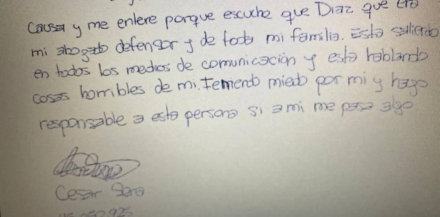 causa y me entere porque escuche que Diaz que era
mi abogado defensor y de toda mi familia. Esta saliendo
en todos los medios de comunicación y esta hablando
cosas horribles de mi. Temendo miedo por mi y hago
responsable a esta persona si a mi me pasa algo.
Cesar Sena